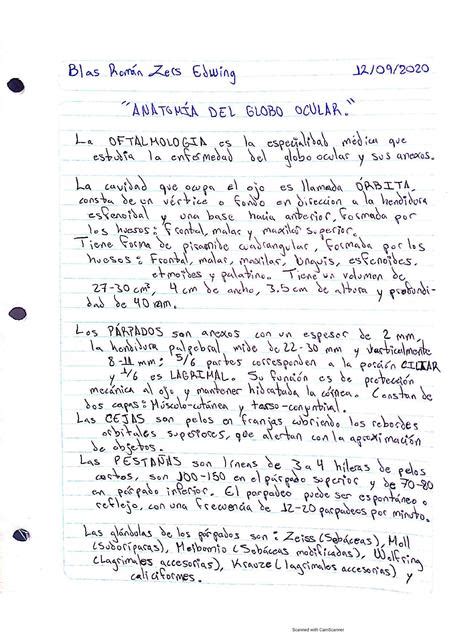 Blas Román Zers Edwing 12/09/2020
"ANATOMÍA DEL GLOBO OCULAR."
La OFTALMOLOGIA es la especialidad médica que
estudia la enfermedad del globo ocular y sus anexos.
La cavidad que ocupa el ojo es llamada ÓRBITA,
consta de un vértice o fondo en direccion a la hendidura
esfenoidal y una base hacia anterior, formada por
los huesos: frontal, malar y maxilar superior.
Tiene forma de piramide cuadrangular, formada por los
huesos: Frontal, malar, maxilar, Unguis, esfenoides,
etmoides y palatino. Tiene un volumen de
27-30 cm³, 4 cm de ancho, 3.5 cm de altura y profundi-
dad de 40 mm.
Los PÁRPADOS son anexos con un espesor de 2 mm,
la hendidura palpebral mide de 22-30 mm y verticalmente
8-11 mm; 5/6 partes corresponden a la porción CILIAR
y 1/6 es LAGRIMAL. Su función es de protección
mecánica al ojo y mantener hidratada la córnea. Constan de
dos capas: Músculo-cutánea y tarso-conjuntival.
Las CEJAS son pelos en franjas cubriendo los rebordes
orbitales superiores, que alertan con la aproximación
de objetos.
Las PESTAÑAS son líneas de 3 a 4 hileras de pelos
cortos, son 100-150 en el párpado superior y de 70-80
en párpado inferior. El parpadeo puede ser espontáneo o
reflejo, con una frecuencia de 12-20 parpadeos por minuto.
Las glándulas de los párpados son: Zeiss (Sebáceas), Moll
(Sudoríparas), Meibomio (Sebáceas modificadas), Wolfring
(Lagrimales accesorias), Krauze (lagrimales accesorias) y
caliciformes.
Scanned with CamScanner